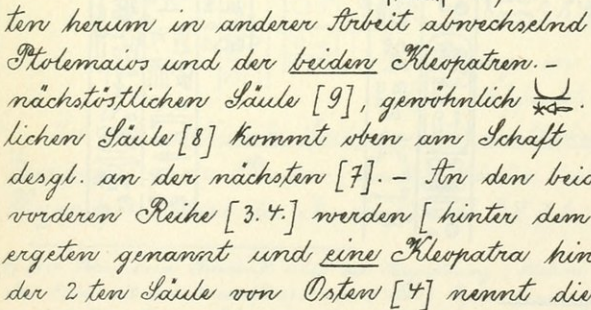 ten herum in anderer Arbeit abwechselnd
Ptolemaios und der beiden Kleopatren. –
nächstöstlichen Säule [9], gewöhnlich
lichen Säule [8] kommt oben am Schaft
desgl. an der nächsten [7]. – An den beid
vorderen Reihe [3. 4.] werden [hinter dem
ergeten genannt und eine Kleopatra hin
der 2 ten Säule von Osten [4] nennt die